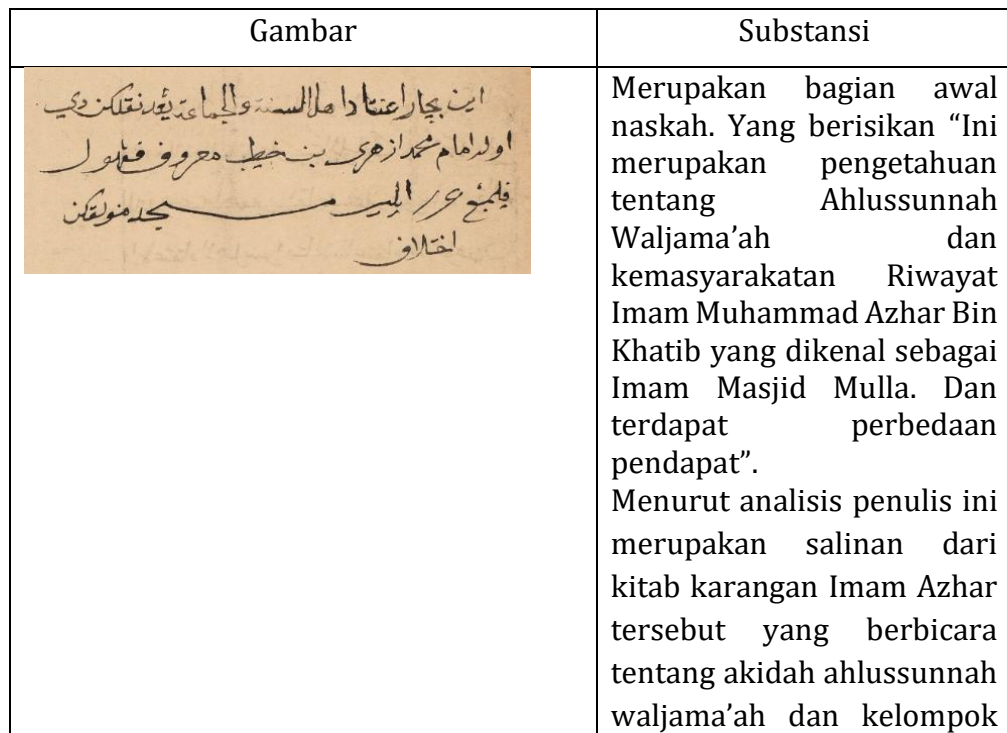 Gambar
Substansi
اين بچارا اهل السنة والجماعة يڠدنقلكن دي
اوله امام محمد ازهري بن خطيب معروف فڠهول
فلمبڠ مسجد
اختلاف
Merupakan bagian awal
naskah. Yang berisikan “Ini
merupakan pengetahuan
tentang Ahlussunnah
Waljama’ah dan
kemasyarakatan Riwayat
Imam Muhammad Azhar Bin
Khatib yang dikenal sebagai
Imam Masjid Mulla. Dan
terdapat perbedaan
pendapat”.
Menurut analisis penulis ini
merupakan salinan dari
kitab karangan Imam Azhar
tersebut yang berbicara
tentang akidah ahlussunnah
waljama’ah dan kelompok